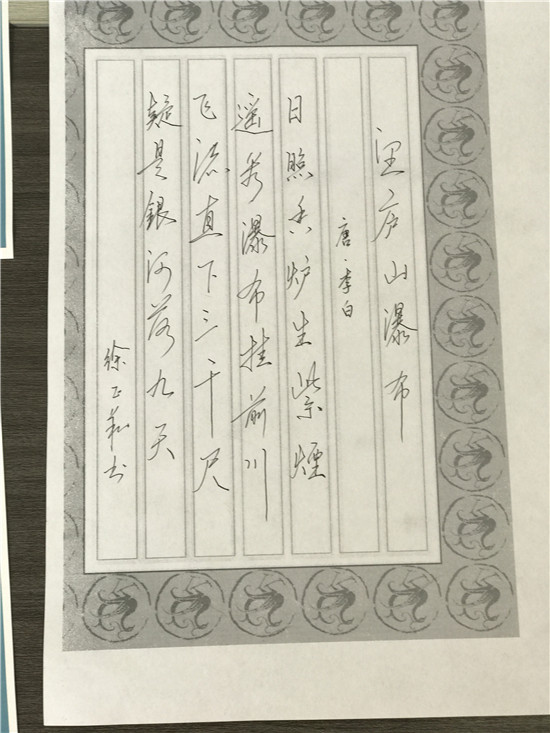 望庐山瀑布
唐·李白
日照香炉生紫煙
遥看瀑布挂前川
飞流直下三千尺
疑是銀河落九天
徐正和书